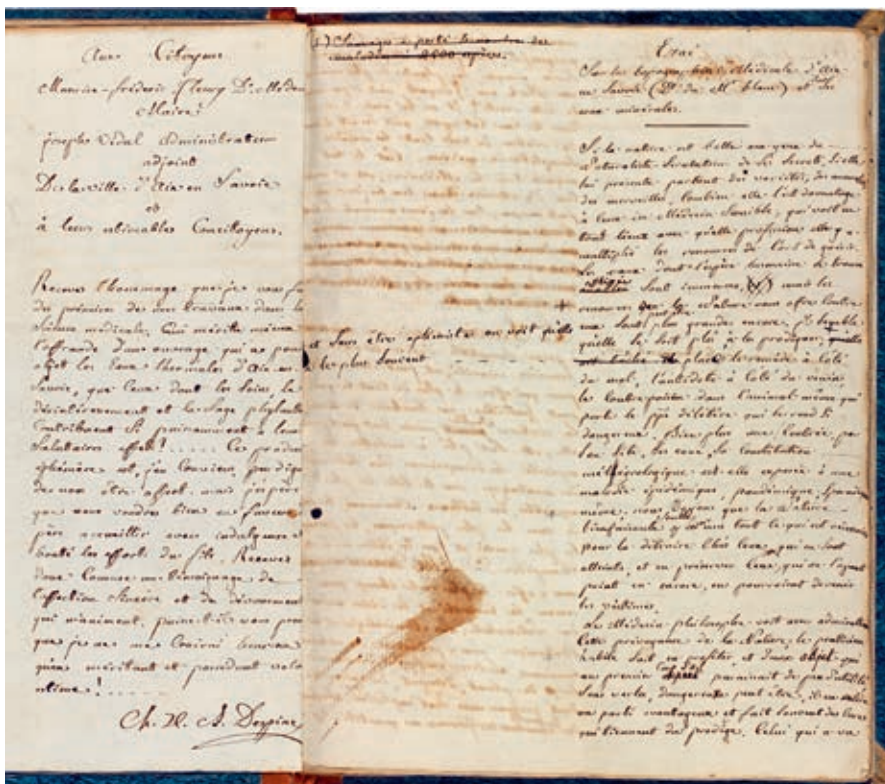 Aux Citoyens
Maurice-frédéric fleury Dr. Médn
Maire;
joseph Vidal administrateur
adjoint
De la ville d'Aix en Savoie
et
à leurs estimables Concitoyens.
Recevez l'hommage que je vous
du premier de mes travaux dans la
Science médicale. Qui mérite mieux
l'offrande d'un ouvrage, qui a pour
objet les Eaux thermales d'Aix en
Savoie, que Ceux dont les soins, le
désintéressement et la sage
Contribuent Si puissamment à leurs
Salutaires effets? ..... Ce
éphémère est, j'en Conviens, peu digne
de vous être offert. mais j'espère
que vous voudrez bien en faveur
père accueillir avec indulgence et
bonté les efforts du fils. Recevez
donc Comme un témoignage de
l'affection Sincère et du dévouement
qui m'animent, puisse-t-il vous
que je ne me Croirai heureux
qu'en méritant et possédant votre
estime! .....
Ch. H. A. Despine
(1) Sauvages a porté le nombre des
maladies à 2500 espèces.
et Sans être optimiste on voit qu'elle
le plus Souvent
Essai
Sur la topographie Médicale d'Aix
en Savoie (Dt. du Mt. blanc) et Sur Ses
eaux minérales.
Si la nature est belle aux yeux du
Naturaliste Scrutateur de Ses Secrets, Si elle
lui présente partout des variétés,
des merveilles, Combien elle l'est davantage
à Ceux du Médecin Sensible, qui voit en
tous lieux avec quelle profusion elle a
multiplié les ressources de l'art de guérir.
Les maux dont l'espèce humaine
Sont immenses, (1) mais les
ressources que la Nature nous offre Contre
eux Sont peut être plus grandes encore.
qu'elle le Soit plus à les prodiguer,
place le remède à Côté
du mal, l'antidote à Côté du venin
le Contre poison dans l'animal même qui
porte le délétère qui le rend Si
dangereux. Bien plus une Contrée, par
Son Site, Ses eaux, Sa Constitution
météorologique est elle exposée à une
maladie épidémique, pandémique,
même, nous voyons que la Nature
bienfaisante y tout Ce qui est nécessaire
pour la détruire Chez Ceux qui en Sont
atteints, et en préserver Ceux, qui ne l'ayant
point eu encore, en pourroient devenir
les victimes.
Le Médecin philosophe voit avec admiration
Cette prévoyance de la Nature; le praticien
habile Sait en profiter, et d'un objet qui
au premier paraissait de peu d'utilité
Sans vertu, dangereux peut être, il en retire
un parti avantageux et fait Souvent des Cures
qui tiennent du prodige. Celui qui a vu